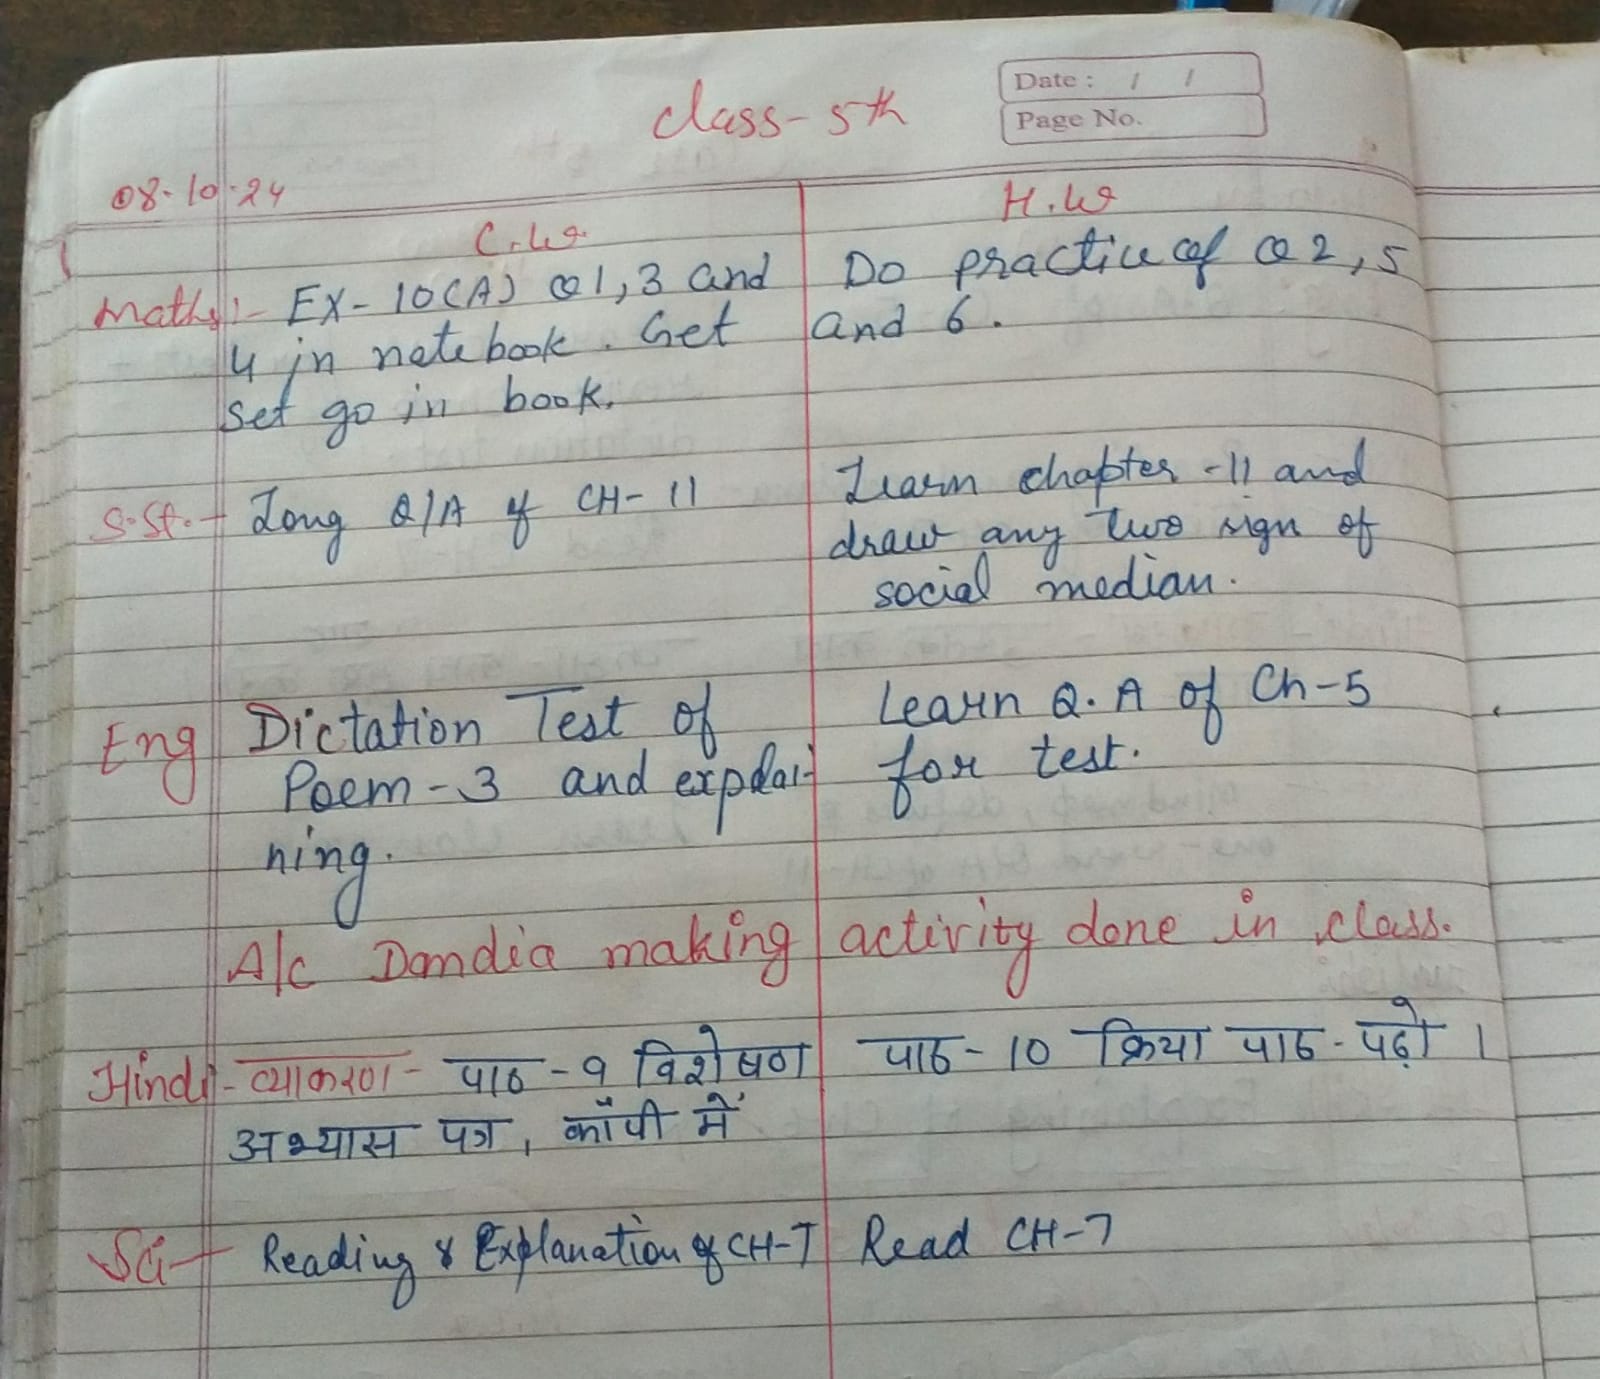 class-5th
Date : / /
Page No.
08-10-24
C.W
H.W
Maths:- EX-10(A) Q1,3 and
4 in notebook. Get
set go in book.
Do practice of Q2,5
and 6.
S.St.- Long Q/A of CH-11
Learn chapter-11 and
draw any two sign of
social median.
Eng Dictation Test of
Poem-3 and explai-
ning.
Learn Q.A of Ch-5
for test.
A/c Dandia making activity done in class.
Hindi- व्याकरण- पाठ-9 विशेषण
अभ्यास पत्र, कॉपी में
पाठ-10 क्रिया पाठ-पढ़ो।
Sci- Reading & Explanation of CH-7
Read CH-7